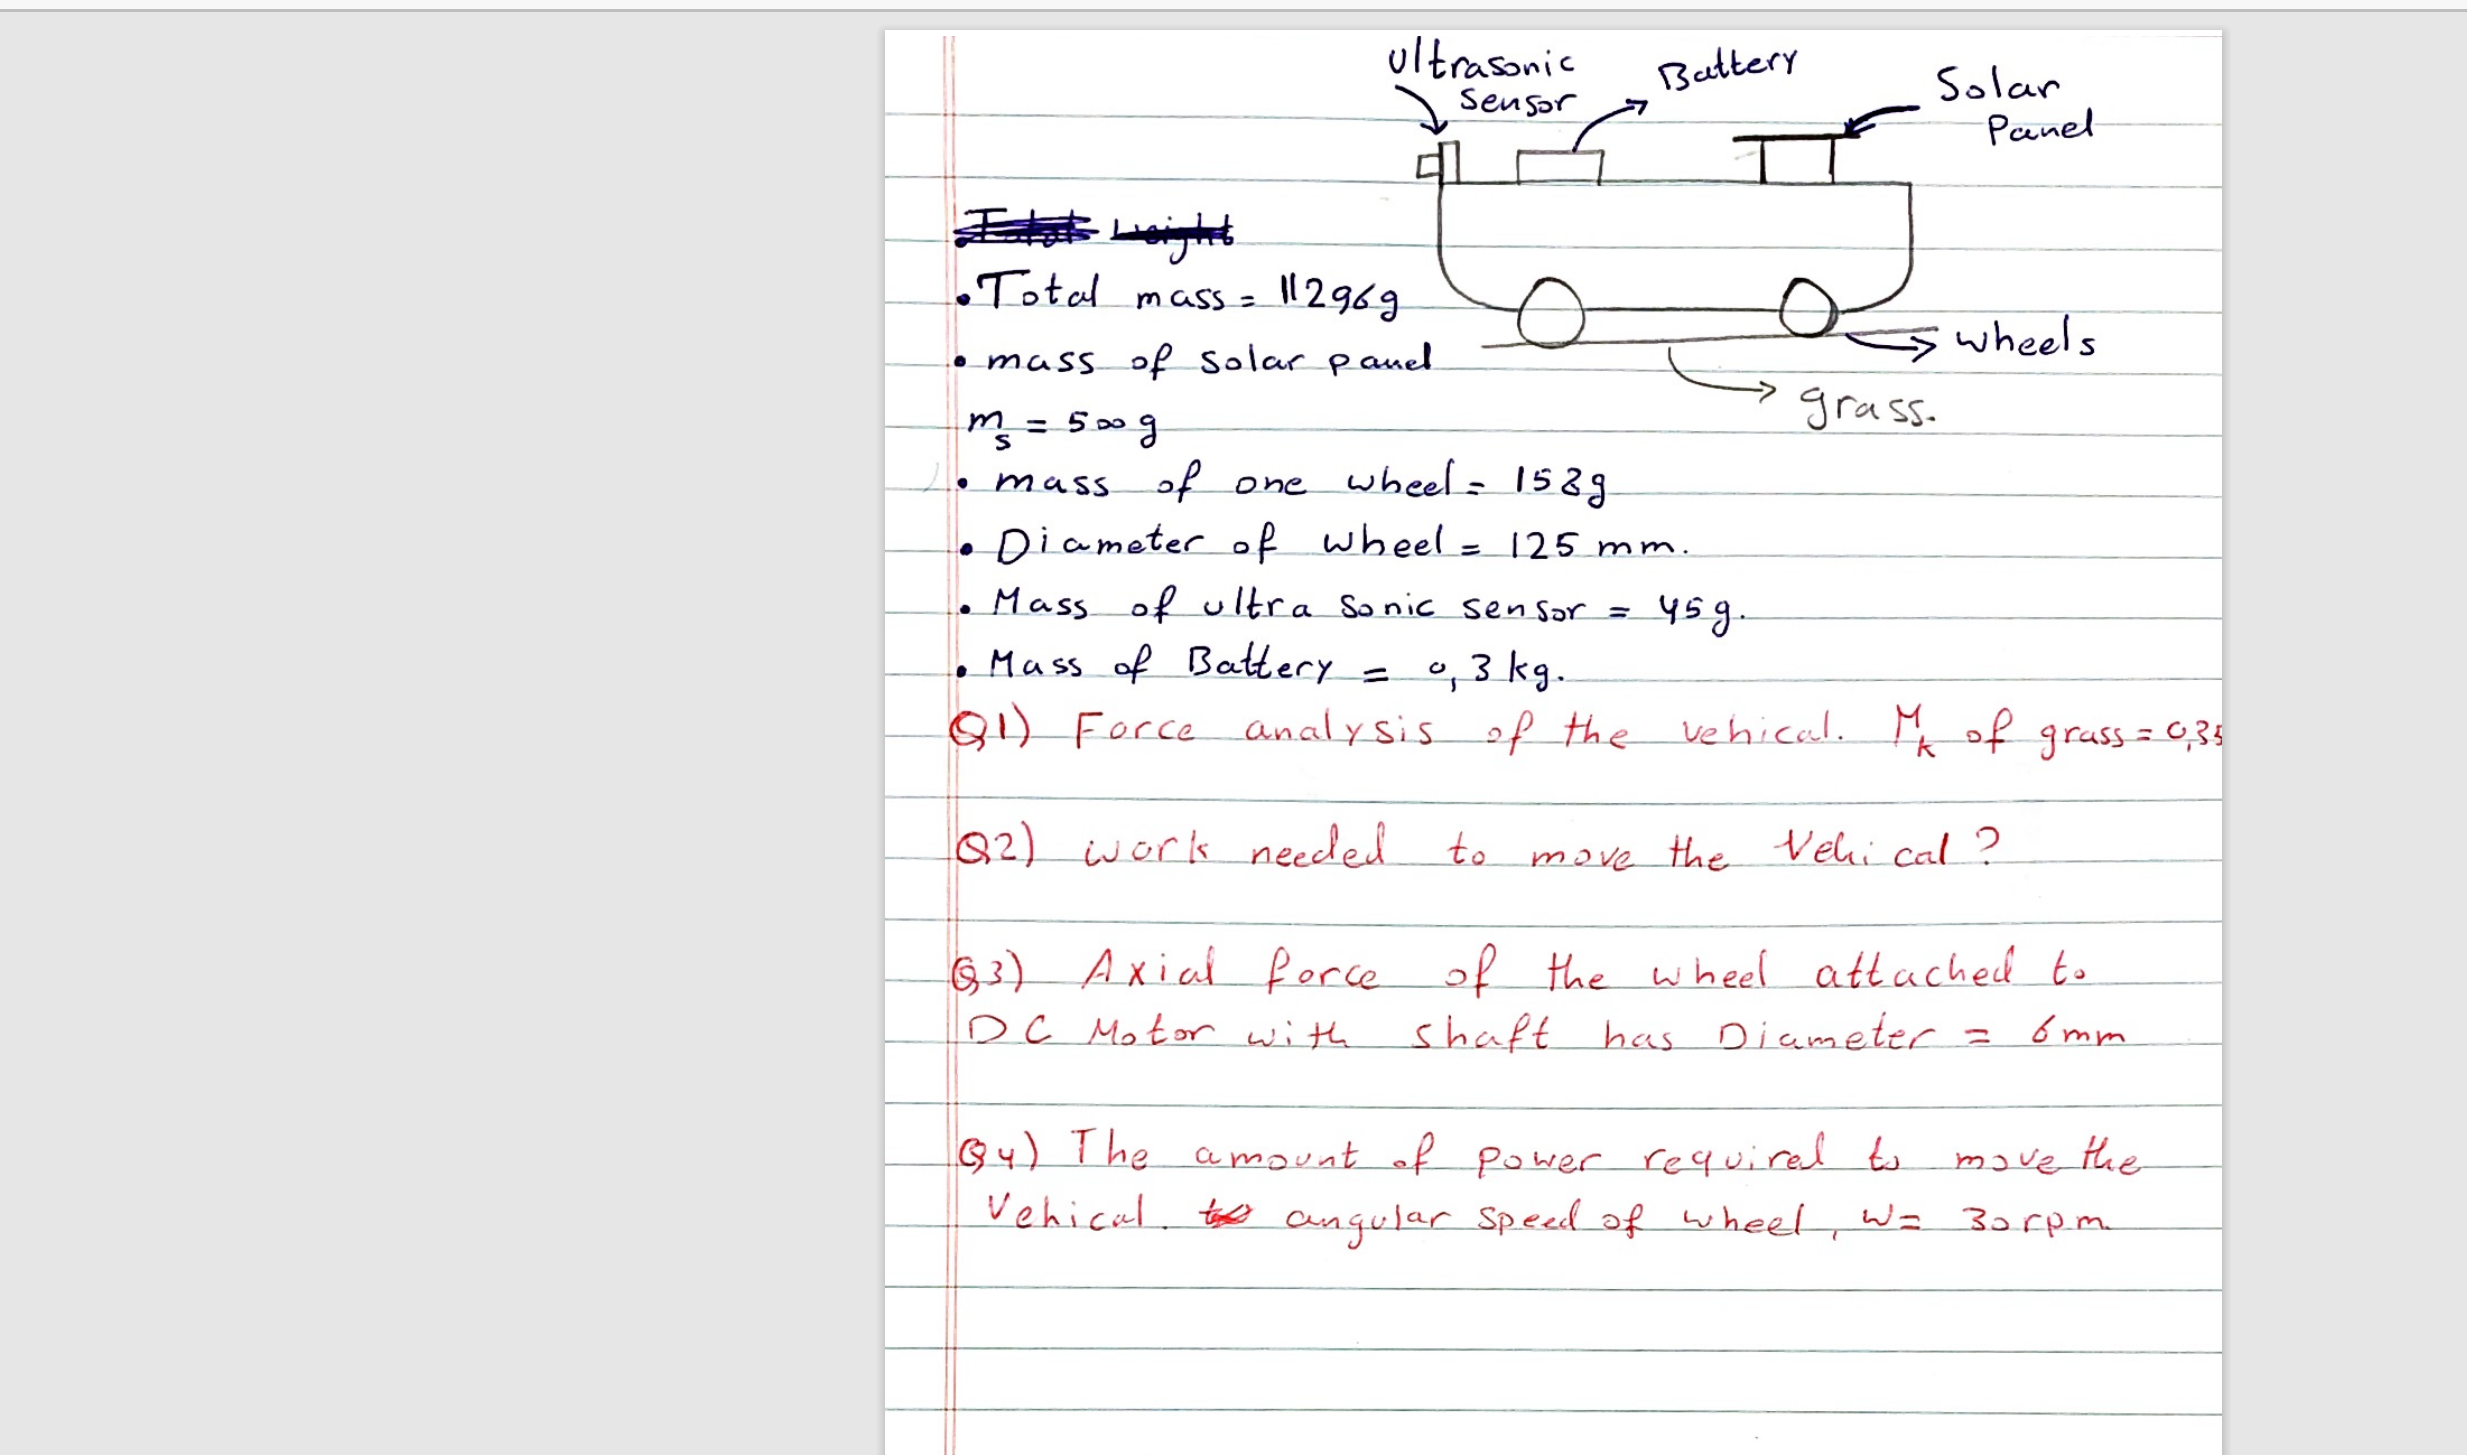 Ultrasonic
Sensor
Battery
Solar
Panel
Total weight
• Total mass = 11296g
• mass of solar panel
mₛ = 500 g
wheels
grass.
• mass of one wheel = 158g
• Diameter of wheel = 125 mm.
• Mass of ultra sonic sensor = 45g.
• Mass of Battery = 0,3 kg.
Q1) Force analysis of the vehical. Mₖ of grass = 0,35
Q2) work needed to move the Vehical ?
Q3) Axial force of the wheel attached to
DC Motor with shaft has Diameter = 6mm
Q4) The amount of power required to move the
Vehical. angular speed of wheel, w = 30rpm.